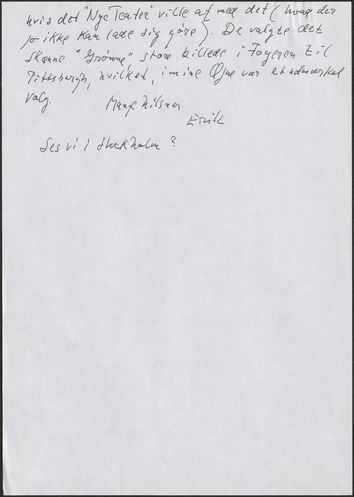 hvis det "Nye Teater" ville af med det (hvad der
jo ikke kan lade sig göre). De valgte det
skønne "Grønne" store billede i Foyeren til
Pittsburgh, hvilket, i mine Øjne var et udmærket
valg.
Mange hilsner
Erik
Ses vi i Stockholm?